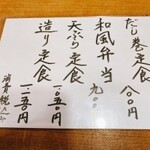 だし巻定食 八〇〇円
和風弁当 九〇〇
天ぷら定食 一〇五〇円
造り定食 一二五〇円
消費税